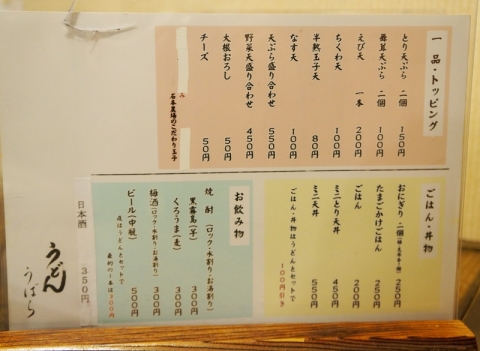 一品・トッピング
とり天ぷら 二個 150円
舞茸天ぷら 二個 100円
えび天 一本 200円
ちくわ天 100円
半熟玉子天 80円
なす天 100円
天ぷら盛り合わせ 550円
野菜天盛り合わせ 450円
大根おろし 50円
チーズ 50円
石本農場のこだわり玉子
ごはん・丼物
おにぎり 二個 250円
たまごかけごはん 250円
ごはん 200円
ミニとり天丼 450円
ミニ天丼 550円
ごはん・丼物はうどんとセットで
100円引き
お飲み物
焼酎 (ロック・水割り・お湯割り)
黒霧島(芋) 300円
くろうま(麦) 300円
梅酒(ロック・水割り・お湯割り) 300円
ビール(中瓶) 500円
夜はうどんとセットで
最初の1本は300円
日本酒 350円
うどん
うばら